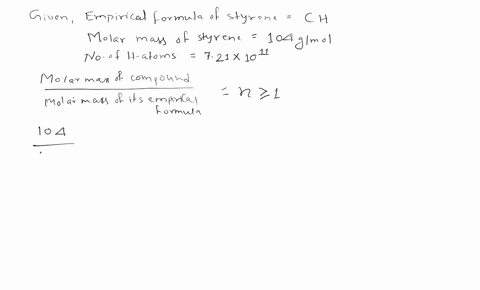 Given, Empirical formula of styrene = CH
Molar mass of styrene = 104 g/mol
No. of H-atoms = 7.21 × 10¹¹
Molar mass of compound
Molar mass of its empirical formula
= n ≥ 1
104